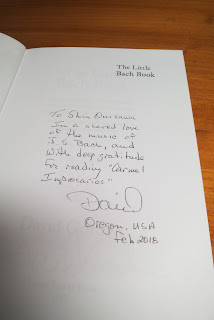 The Little
Bach Book
To Shin
In a shared love
of the music of
J. S. Bach, and
with deep gratitude
for reading "Carmel
Impresarios"
David
Oregon, USA
Feb 2018